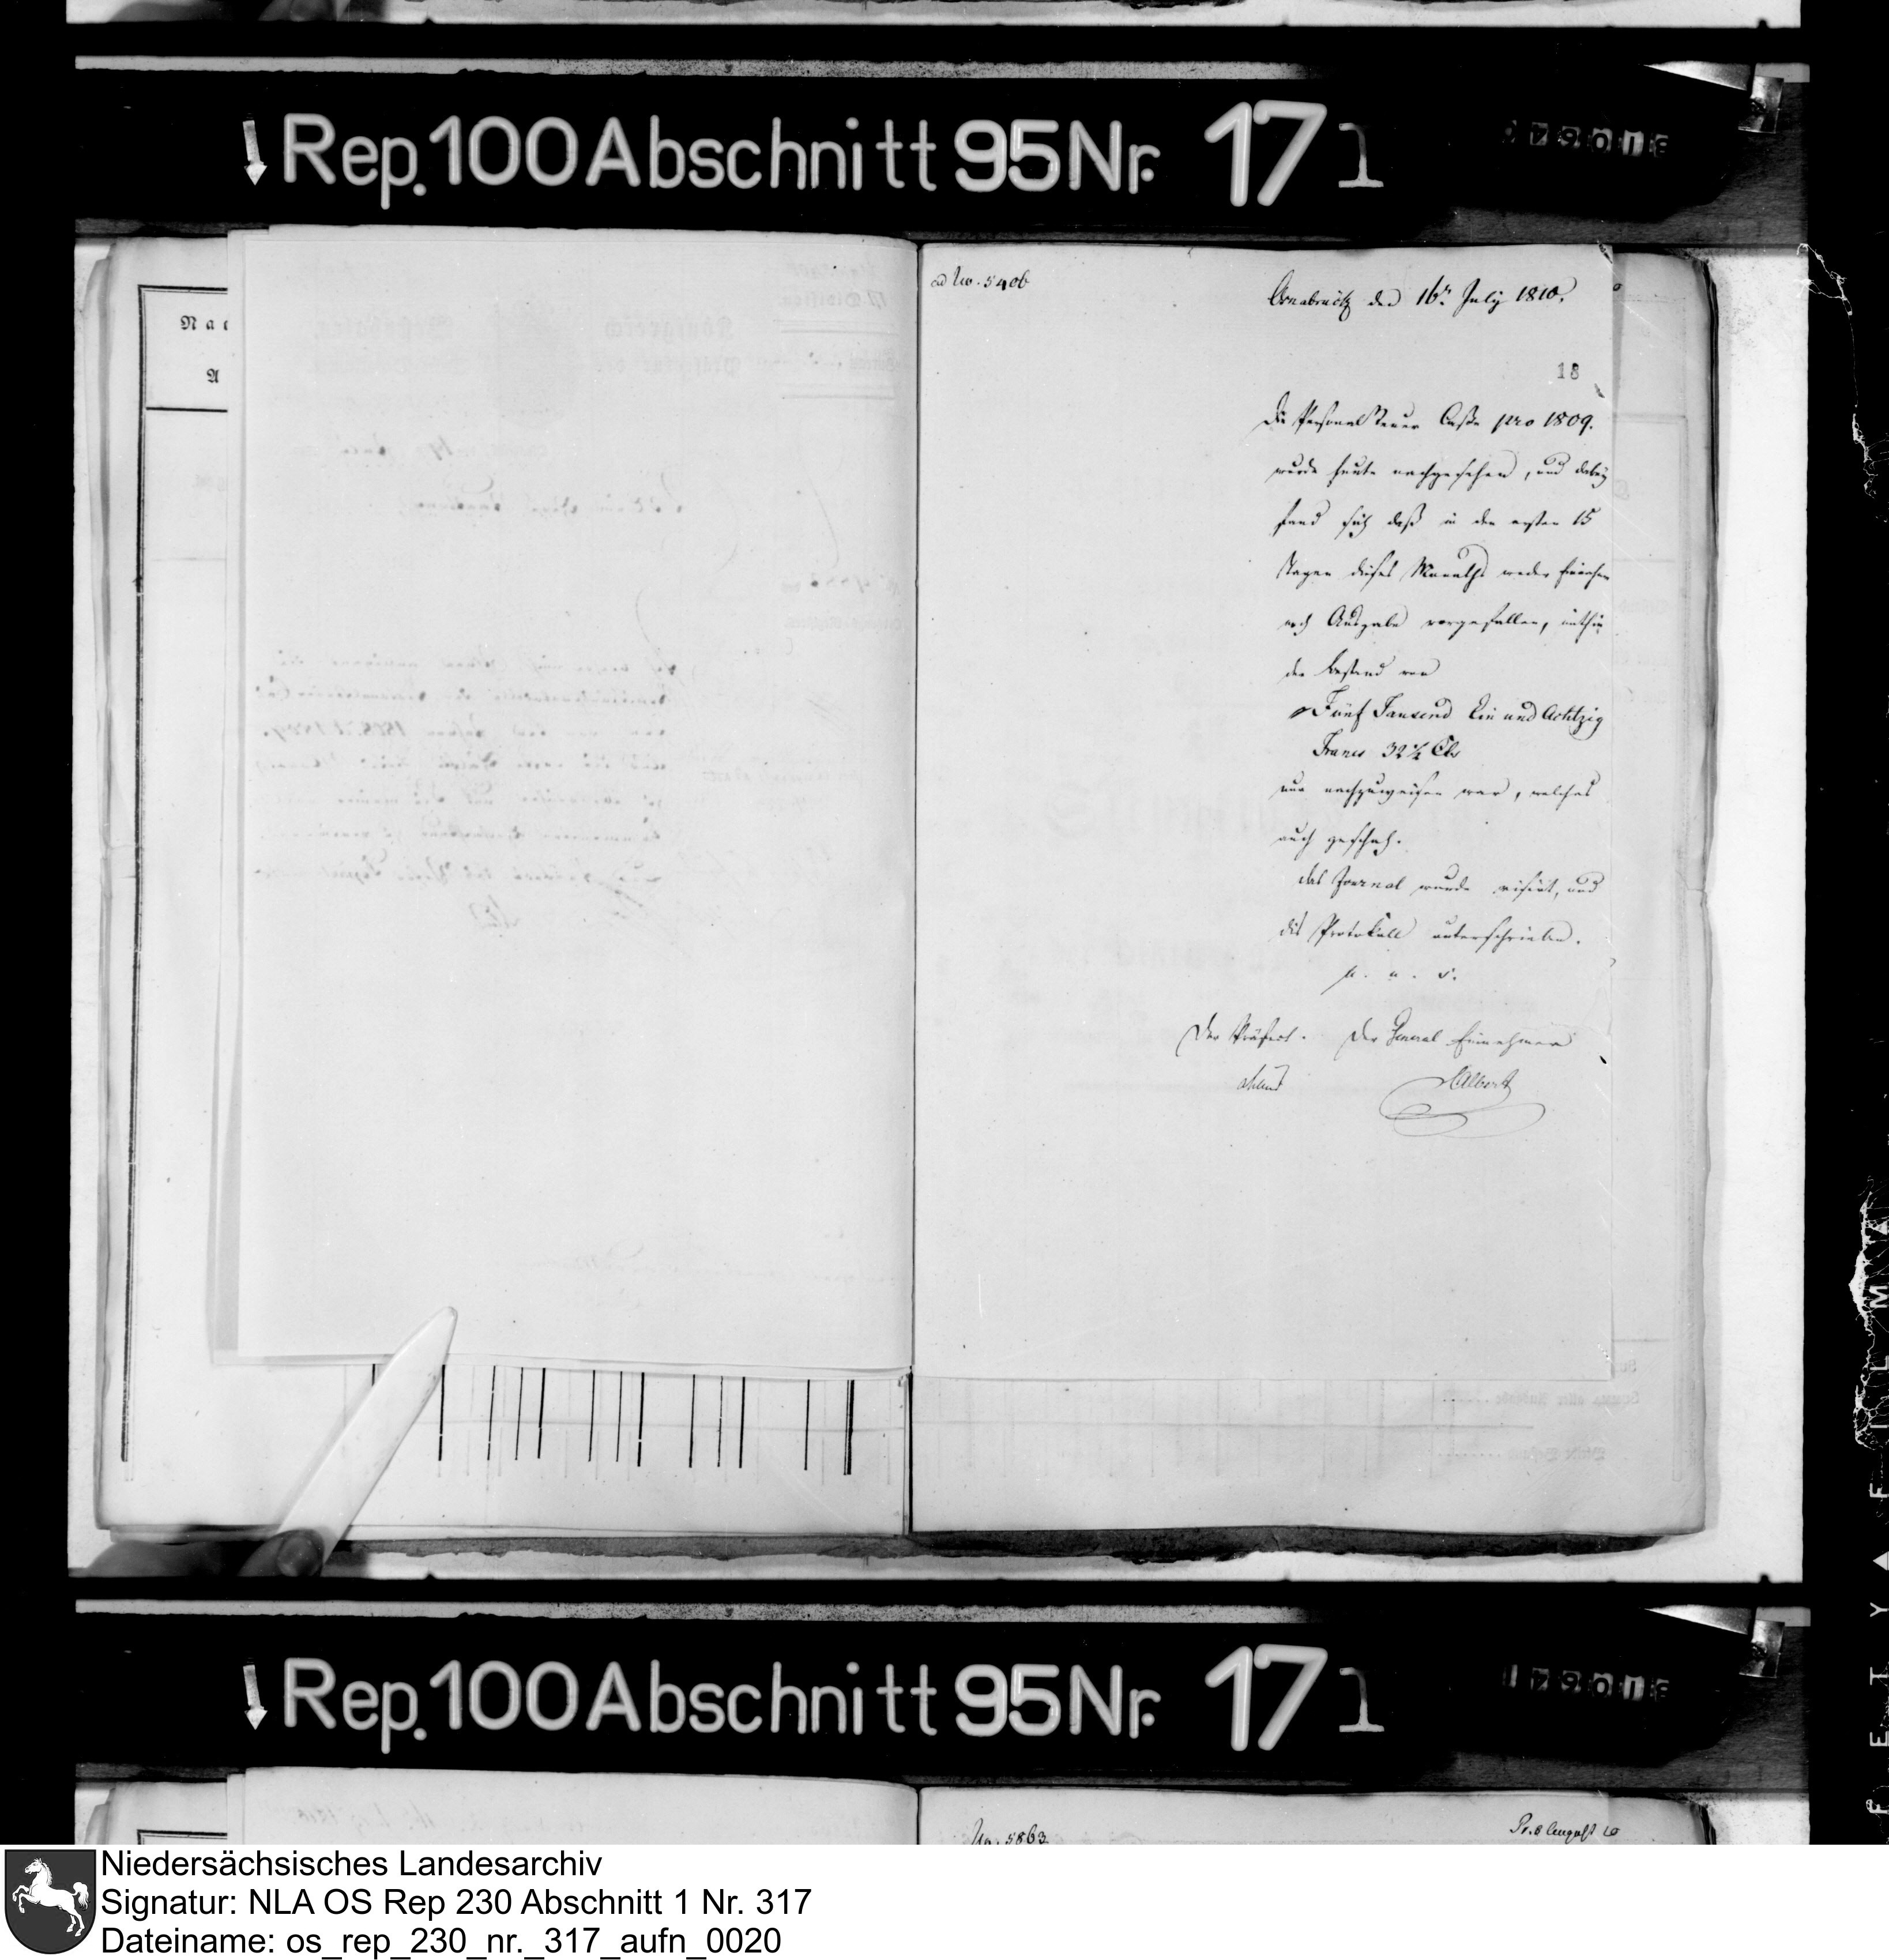 Rep. 100 Abschnitt 95 Nr. 17 1
Nac
A
ad No. 5406
Osnabrück den 16n July 1810.
18
Die Personal Steuer Caße pro 1809.
wurde heute nachgesehen, und dabey
fand sich daß in den ersten 15
Tagen dieses Monaths weder Einnahme
noch Ausgabe vorgefallen, mithin
der Bestand von
Fünf Tausend Ein und Achtzig
Francs 32½ Cts
nur nachzuweisen war, welches
auch geschah.
das Journal wurde visirt, und
dis Protokoll unterschrieben.
u. s.
Der Präfect. Der General Einnehmer
Albert
Rep. 100 Abschnitt 95 Nr. 17 1
No. 5863
Pr. 8 August 10
Niedersächsisches Landesarchiv
Signatur: NLA OS Rep 230 Abschnitt 1 Nr. 317
Dateiname: os_rep_230_nr._317_aufn_0020